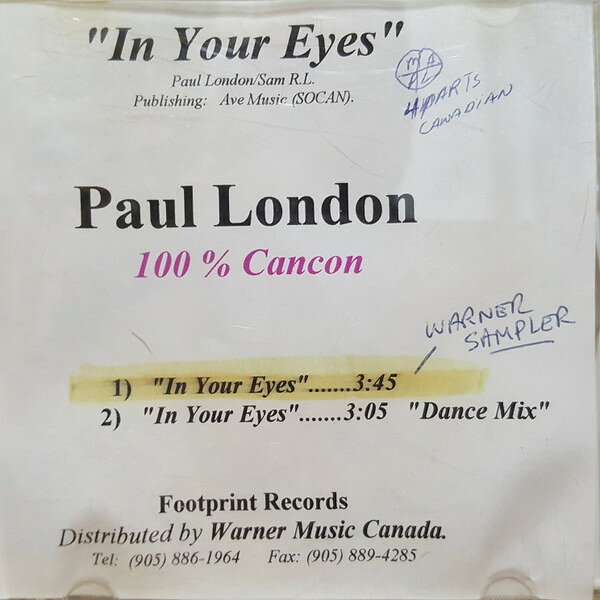 "In Your Eyes"
Paul London/Sam R.L.
Publishing: Ave Music (SOCAN).
M A
A L
4 PARTS
CANADIAN
Paul London
100 % Cancon
WARNER
SAMPLER
1) "In Your Eyes".......3:45
2) "In Your Eyes".......3:05 "Dance Mix"
Footprint Records
Distributed by Warner Music Canada.
Tel: (905) 886-1964 Fax: (905) 889-4285